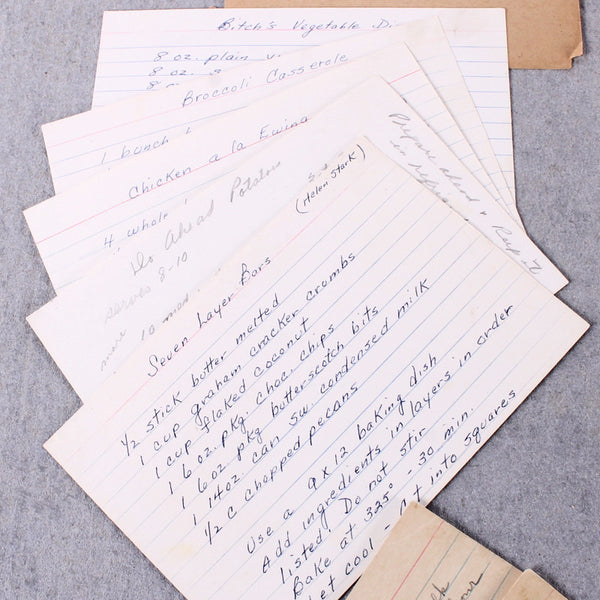 Bitch's Vegetable
8 oz. plain
8 oz.
8
Broccoli Casserole
1 bunch
Chicken a la Ewing
4 whole
Do Ahead Potatoes
serves 8-10
10 med.
Prepare ahead &
in
(Helen Stark)
Seven Layer Bars
1/2 stick butter melted
1 cup graham cracker crumbs
1 cup flaked coconut
1 6 oz. pkg. choc. chips
1 6 oz pkg butterscotch bits
1 14oz can sw. condensed milk
1/2 c chopped pecans
Use a 9 x 12 baking dish
Add ingredients in layers in order
listed. Do not stir
Bake at 325° - 30 min.
Let cool - cut into squares